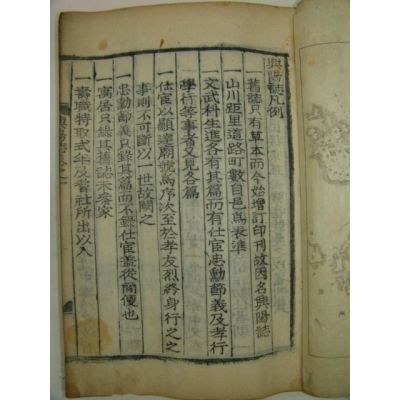 興陽誌凡例
一舊誌只有草本而今始增訂印刊故因名興陽誌
一山川距里道路町數自邑為表準
一文武科生進各有其篇而有仕宦忠勳節義及孝行
學行等事者又見各篇
一仕宦以顯達廟號為序次至於孝友烈終身行之之
事則不可斷以一世故闕之
一忠勳節義只錄其篇而不錄仕宦盖從簡便也
一寓居只錄其舊誌未麥家
一壽職特取式年及耆社所出以入